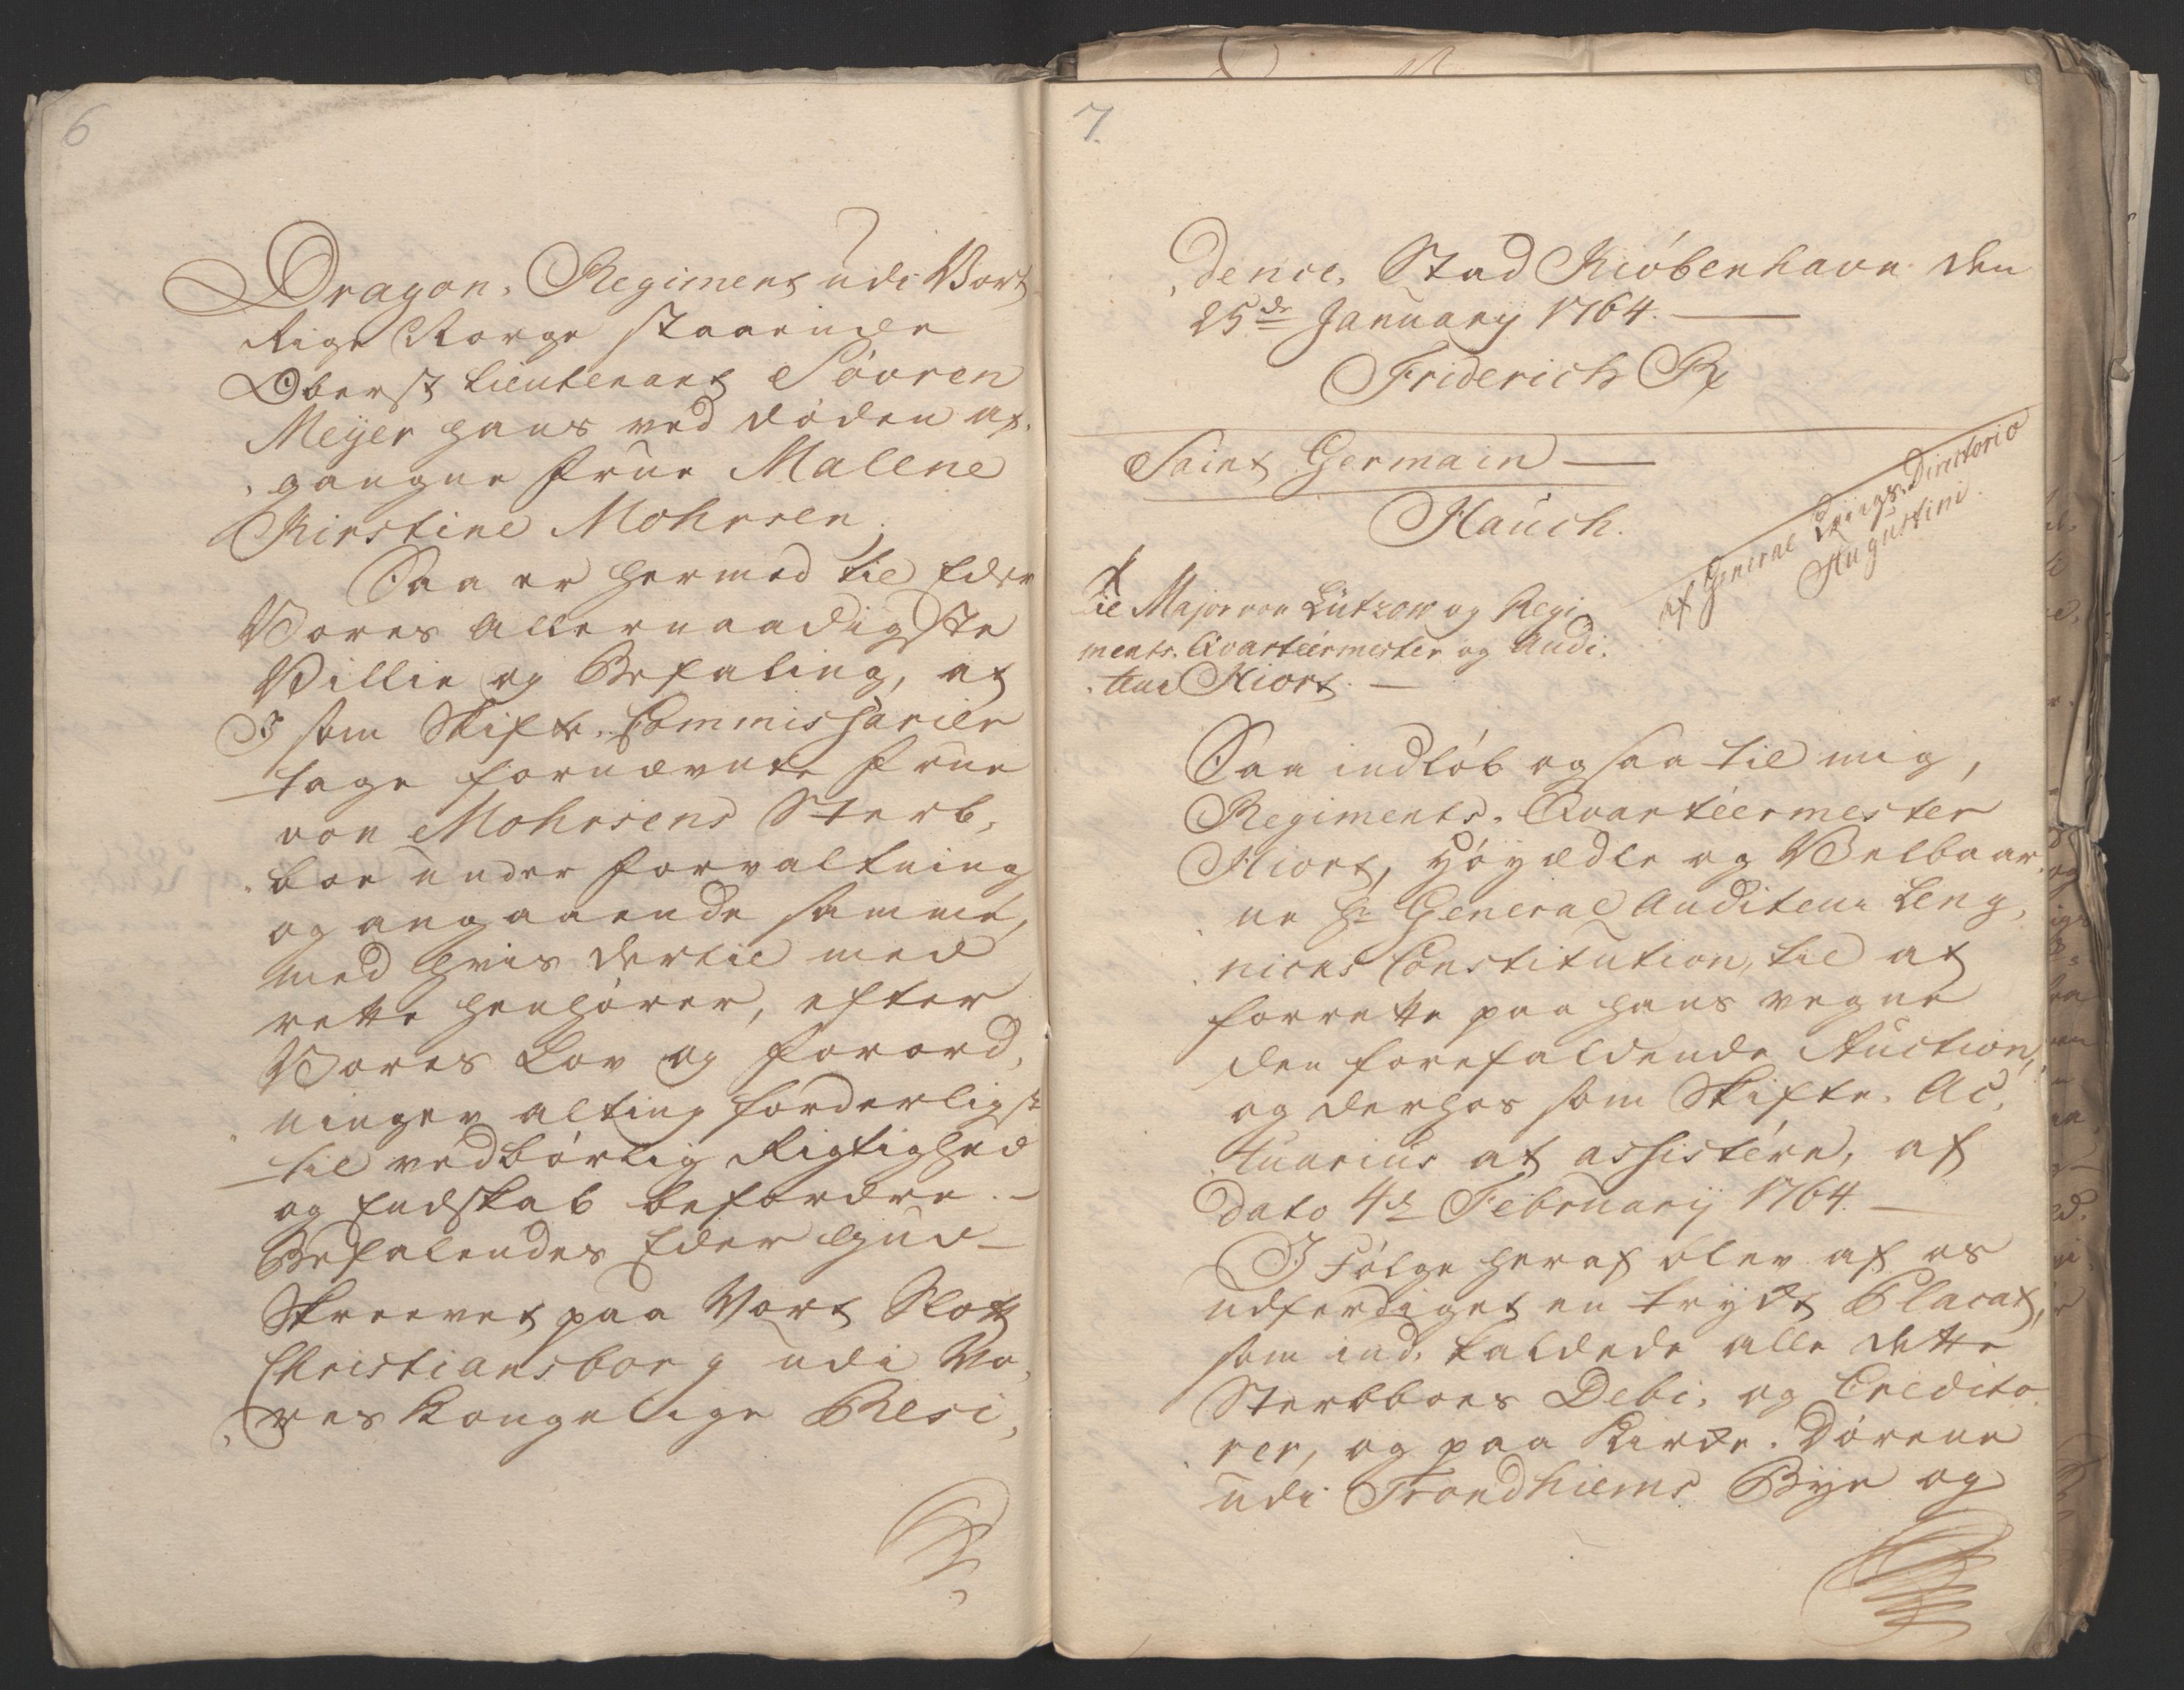 6
Dragon, Regiment udi Vort
Rige Norge staaende
Oberst Lieutenant Søvren
Meÿer hans ved døden af,
gangne Frue Malene
Kirstine Mohrsen,
Saa er hermed til Eder
Vores Allernaadigste
Villie og Befaling, at
I som Skifte, Commissarier
tage fornævnte Frue
von Mohrsens Sterb,
boe under Forvaltning
og angaaende samme,
med hvis dertil med
rette henhører, efter
Vores Lov og Forord,
ninger alting forderligst
til vedbørlig Rigtighed
og Endskab befordre. –
Befalendes Eder Gud –
Skreevet paa Vort Slott
Christiansborg udi Vo,
res Kongelige Resi,
7.
dence, Stad Kiøbenhavn den
25de January 1764. —
Friderich R
Saint Germain —
Hauch.
Af General Krigs, Directorio
Augustini.
Til Major von Lützow og Regi,
ments, Qvarteermester og Audi,
teur Hiort. —
Saa indløb ogsaa til mig,
Regiments, Qvarteermester
Hiort, Høyædle og Velbaar,
ne Hr General Auditeur Leng,
nicks Constitution, til at
forrette paa hans vegne
den forefaldende Auction,
og derhos som Skifte, Ac,
tuarius at assistere, af
dato 4de Februarÿ 1764. —
I Følge heraf blev af os
udferdiget en trykt Placat,
som ind, kaldede alle dette
Sterbboes Debi, og Credito,
rer, og paa Kirke, Dørene
udi Trondhiems Bÿe og